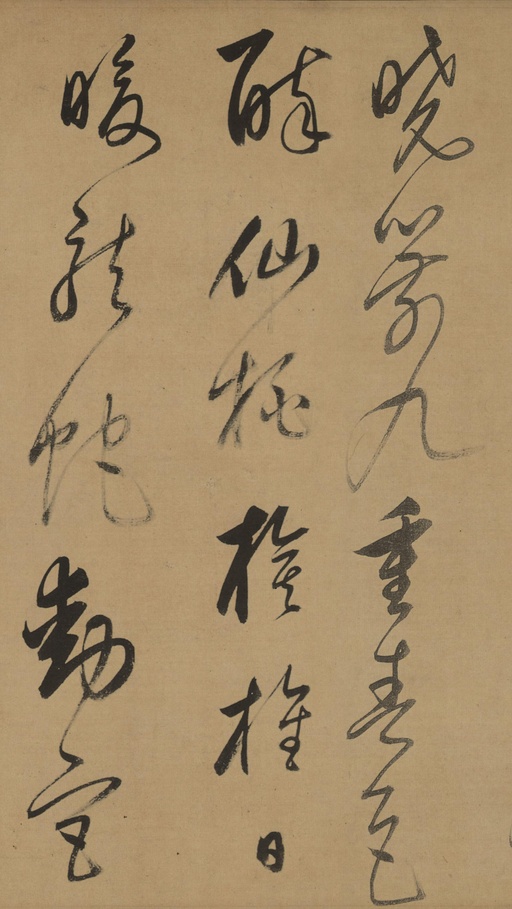 曉箭九重春色
醉仙桃旗旌日
暖龍蛇動宮